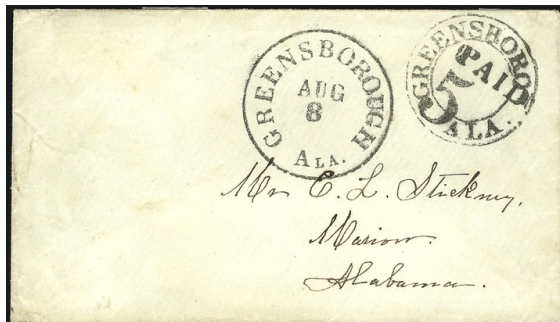 GREENSBOROUGH
AUG
8
ALA.
GREENSBORO
PAID
5
ALA.
Mr E. L. Stickney,
Marion.
Alabama.